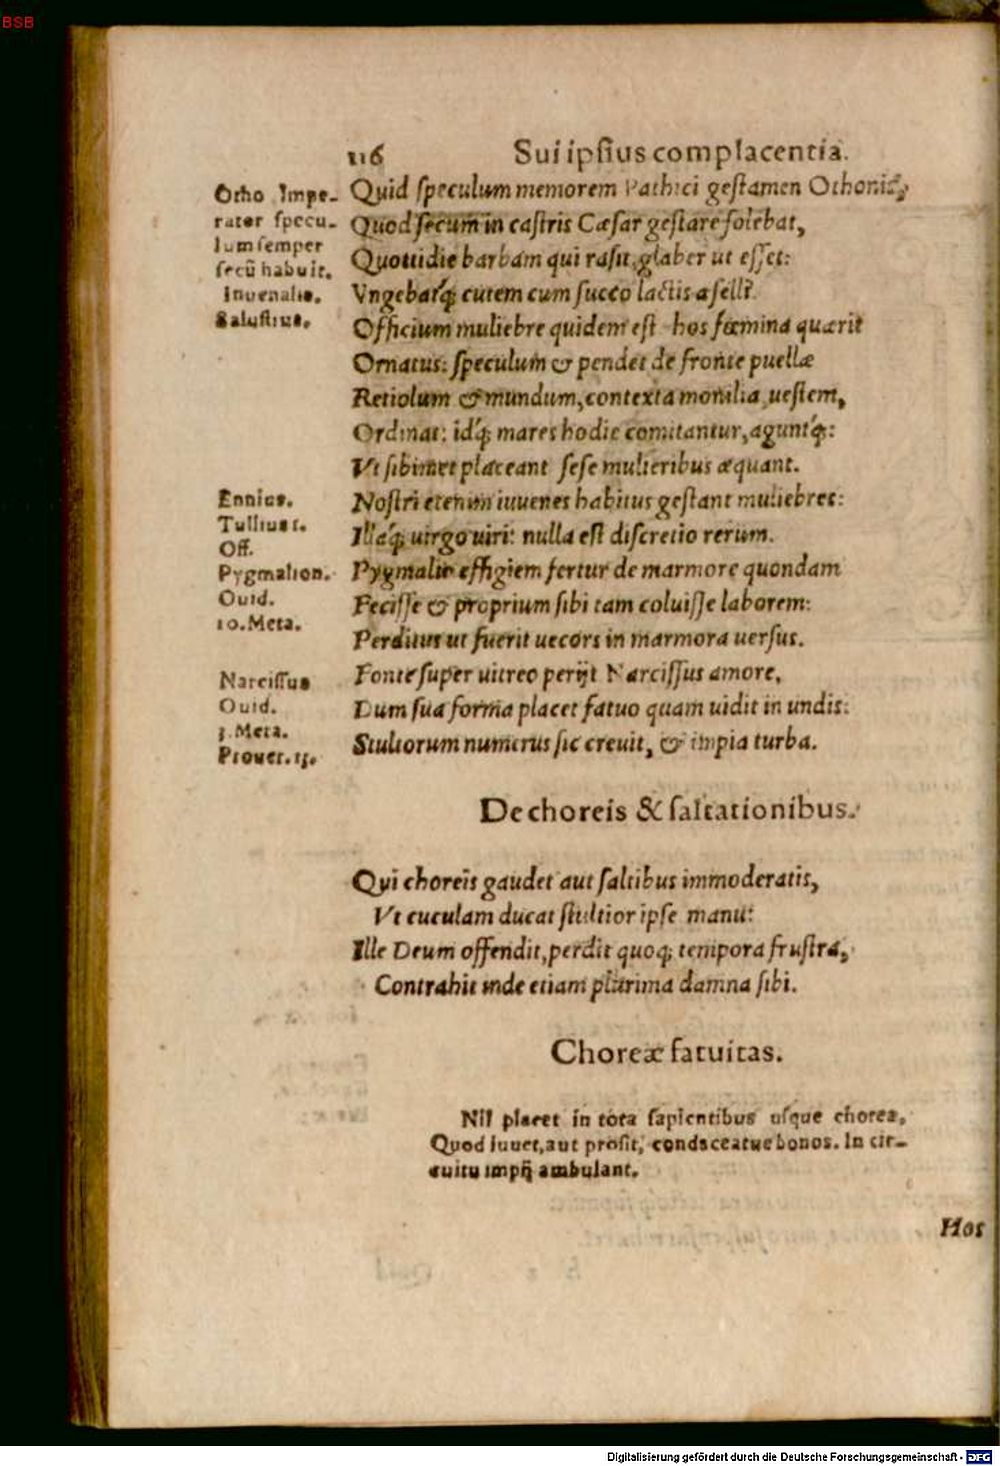 BSB
116 Sui ipsius complacentia.
Otho Impe-
rator specu-
lum semper
secū habuit.
Iuuenalis.
Salustius.
Quid speculum memorem Pathici gestamen Othonis,
Quod secum in castris Cæsar gestare solebat,
Quottidie barbam qui rasit, glaber ut esset:
Vngebatq́; cutem cum succo lactis aselli.
Officium muliebre quidem est hos fœmina quærit
Ornatus: speculum & pendet de fronte puellæ
Retiolum & mundum, contexta monilia uestem,
Ordinat: idq́; mares hodie comitantur, aguntq́;:
Vt sibimet placeant sese mulieribus æquant.
Ennius.
Tullius 1.
Off.
Pygmalion.
Ouid.
10. Meta.
Nostri etenim iuuenes habitus gestant muliebres:
Illaq́; uirgo uiri: nulla est discretio rerum.
Pygmalio effigiem fertur de marmore quondam
Fecisse & proprium sibi tam coluisse laborem:
Perditus ut fuerit uecors in marmora uersus.
Narcissus
Ouid.
3. Meta.
Prouer. 15.
Fonte super uitreo perijt Narcissus amore,
Dum sua forma placet fatuo quam uidit in undis:
Stultorum numerus sic creuit, & impia turba.
De choreis & saltationibus.
Qui choreis gaudet aut saltibus immoderatis,
Vt cuculam ducat stultior ipse manu:
Ille Deum offendit, perdit quoq; tempora frustra,
Contrahit inde etiam plurima damna sibi.
Choreæ fatuitas.
Nil placet in tota sapientibus usque chorea,
Quod iuuet, aut prosit, condeceatue bonos. In cir-
cuitu impij ambulant.
Hos
Digitalisierung gefördert durch die Deutsche Forschungsgemeinschaft - DFG